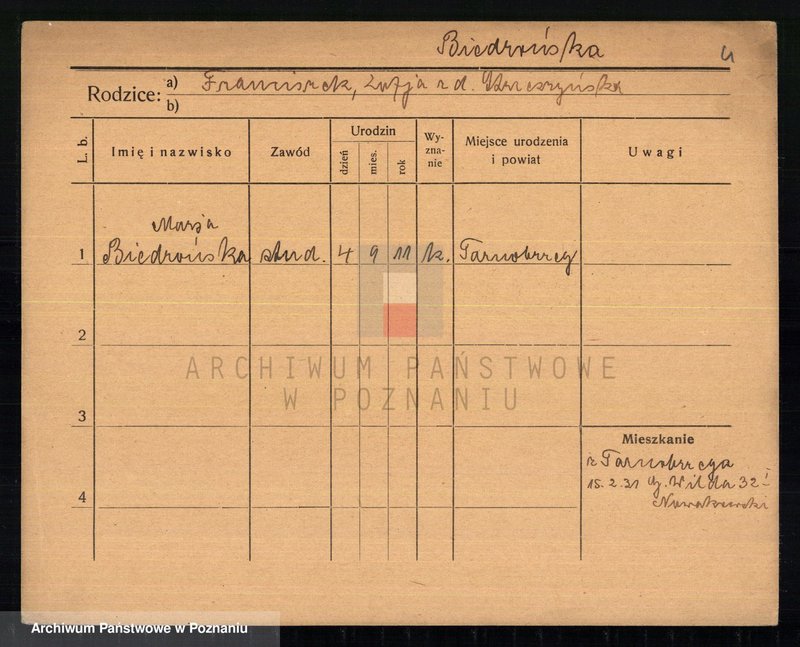 Biedrońska
4
Rodzice: a) Franciszek, Zofja z d. Strzeszyńska
b)
L. b. Imię i nazwisko Zawód Urodzin dzień mies. rok Wy-zna-nie Miejsce urodzenia i powiat Uwagi
Marja
1 Biedrońska stud. 4 9 11 k. Tarnobrzeg
2
ARCHIWUM PAŃSTWOWE
W POZNANIU
3
Mieszkanie
z Tarnobrzega
4 15.2.31 G. Wilda 32 I
Nowakowski
Archiwum Państwowe w Poznaniu